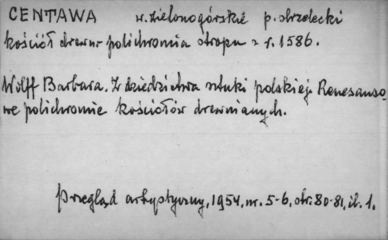 CENTAWA w. zielonogórskie p. strzelecki
kościół drewn. polichromia stropu z r. 1586.
Wolff Barbara. Z dziedzictwa sztuki polskiej. Renesanso
we polichromie kościołów drewnianych.
Przegląd artystyczny, 1954, nr. 5-6, str. 80-81, il. 1.